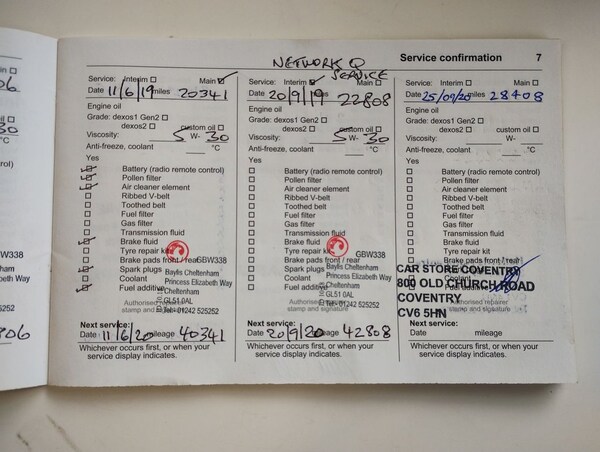 NETWORK Q
SERVICE
Service confirmation 7
Service: Interim Main
Date 11/6/19 miles 20341
Engine oil
Grade: dexos1 Gen2
dexos2 custom oil
Viscosity: 5 W- 30
Anti-freeze, coolant °C
Yes
Battery (radio remote control)
Pollen filter
Air cleaner element
Ribbed V-belt
Toothed belt
Fuel filter
Gas filter
Transmission fluid
Brake fluid
Tyre repair kit
Brake pads front / rear
Spark plugs
Coolant
Fuel additive
GBW338
Baylis Cheltenham
Princess Elizabeth Way
Cheltenham
GL51 0AL
Tel: 01242 525252
Authorised repairer
stamp and signature
Next service:
Date 11/6/20 mileage 40341
Whichever occurs first, or when your
service display indicates.
Service: Interim Main
Date 20/9/19 miles 22808
Engine oil
Grade: dexos1 Gen2
dexos2 custom oil
Viscosity: 5 W- 30
Anti-freeze, coolant °C
Yes
Battery (radio remote control)
Pollen filter
Air cleaner element
Ribbed V-belt
Toothed belt
Fuel filter
Gas filter
Transmission fluid
Brake fluid
Tyre repair kit
Brake pads front / rear
Spark plugs
Coolant
Fuel additive
GBW338
Baylis Cheltenham
Princess Elizabeth Way
Cheltenham
GL51 0AL
Tel: 01242 525252
Authorised repairer
stamp and signature
Next service:
Date 20/9/20 mileage 42808
Whichever occurs first, or when your
service display indicates.
Service: Interim Main
Date 25/09/20 miles 28408
Engine oil
Grade: dexos1 Gen2
dexos2 custom oil
Viscosity: W-
Anti-freeze, coolant °C
Yes
Battery (radio remote control)
Pollen filter
Air cleaner element
Ribbed V-belt
Toothed belt
Fuel filter
Gas filter
Transmission fluid
Brake fluid
Tyre repair kit
Brake pads front / rear
Spark plugs
Coolant
Fuel additive
CAR STORE COVENTRY
800 OLD CHURCH ROAD
COVENTRY
CV6 5HN
Authorised repairer
stamp and signature
Next service:
Date mileage
Whichever occurs first, or when your
service display indicates.